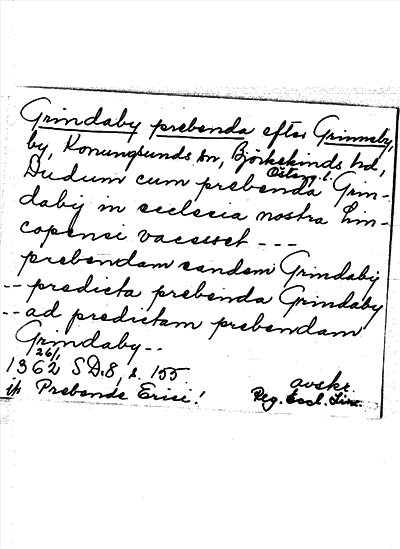 Grindaby prebenda efter Grinneby,
by, Konungsunds sn, Björkekinds hd,
Österg. l.
Dudum cum prebenda Grin-
daby in ecclecia nostra Lin-
copensi vacasset ---
prebendam eandem Grindaby
-- predicta prebenda Grindaby
-- ad predictam prebendam
Grindaby --
26/1
1362 SD 8, s. 155
jfr Prebende Erici!
avskr.
Reg. Eccl. Linc.